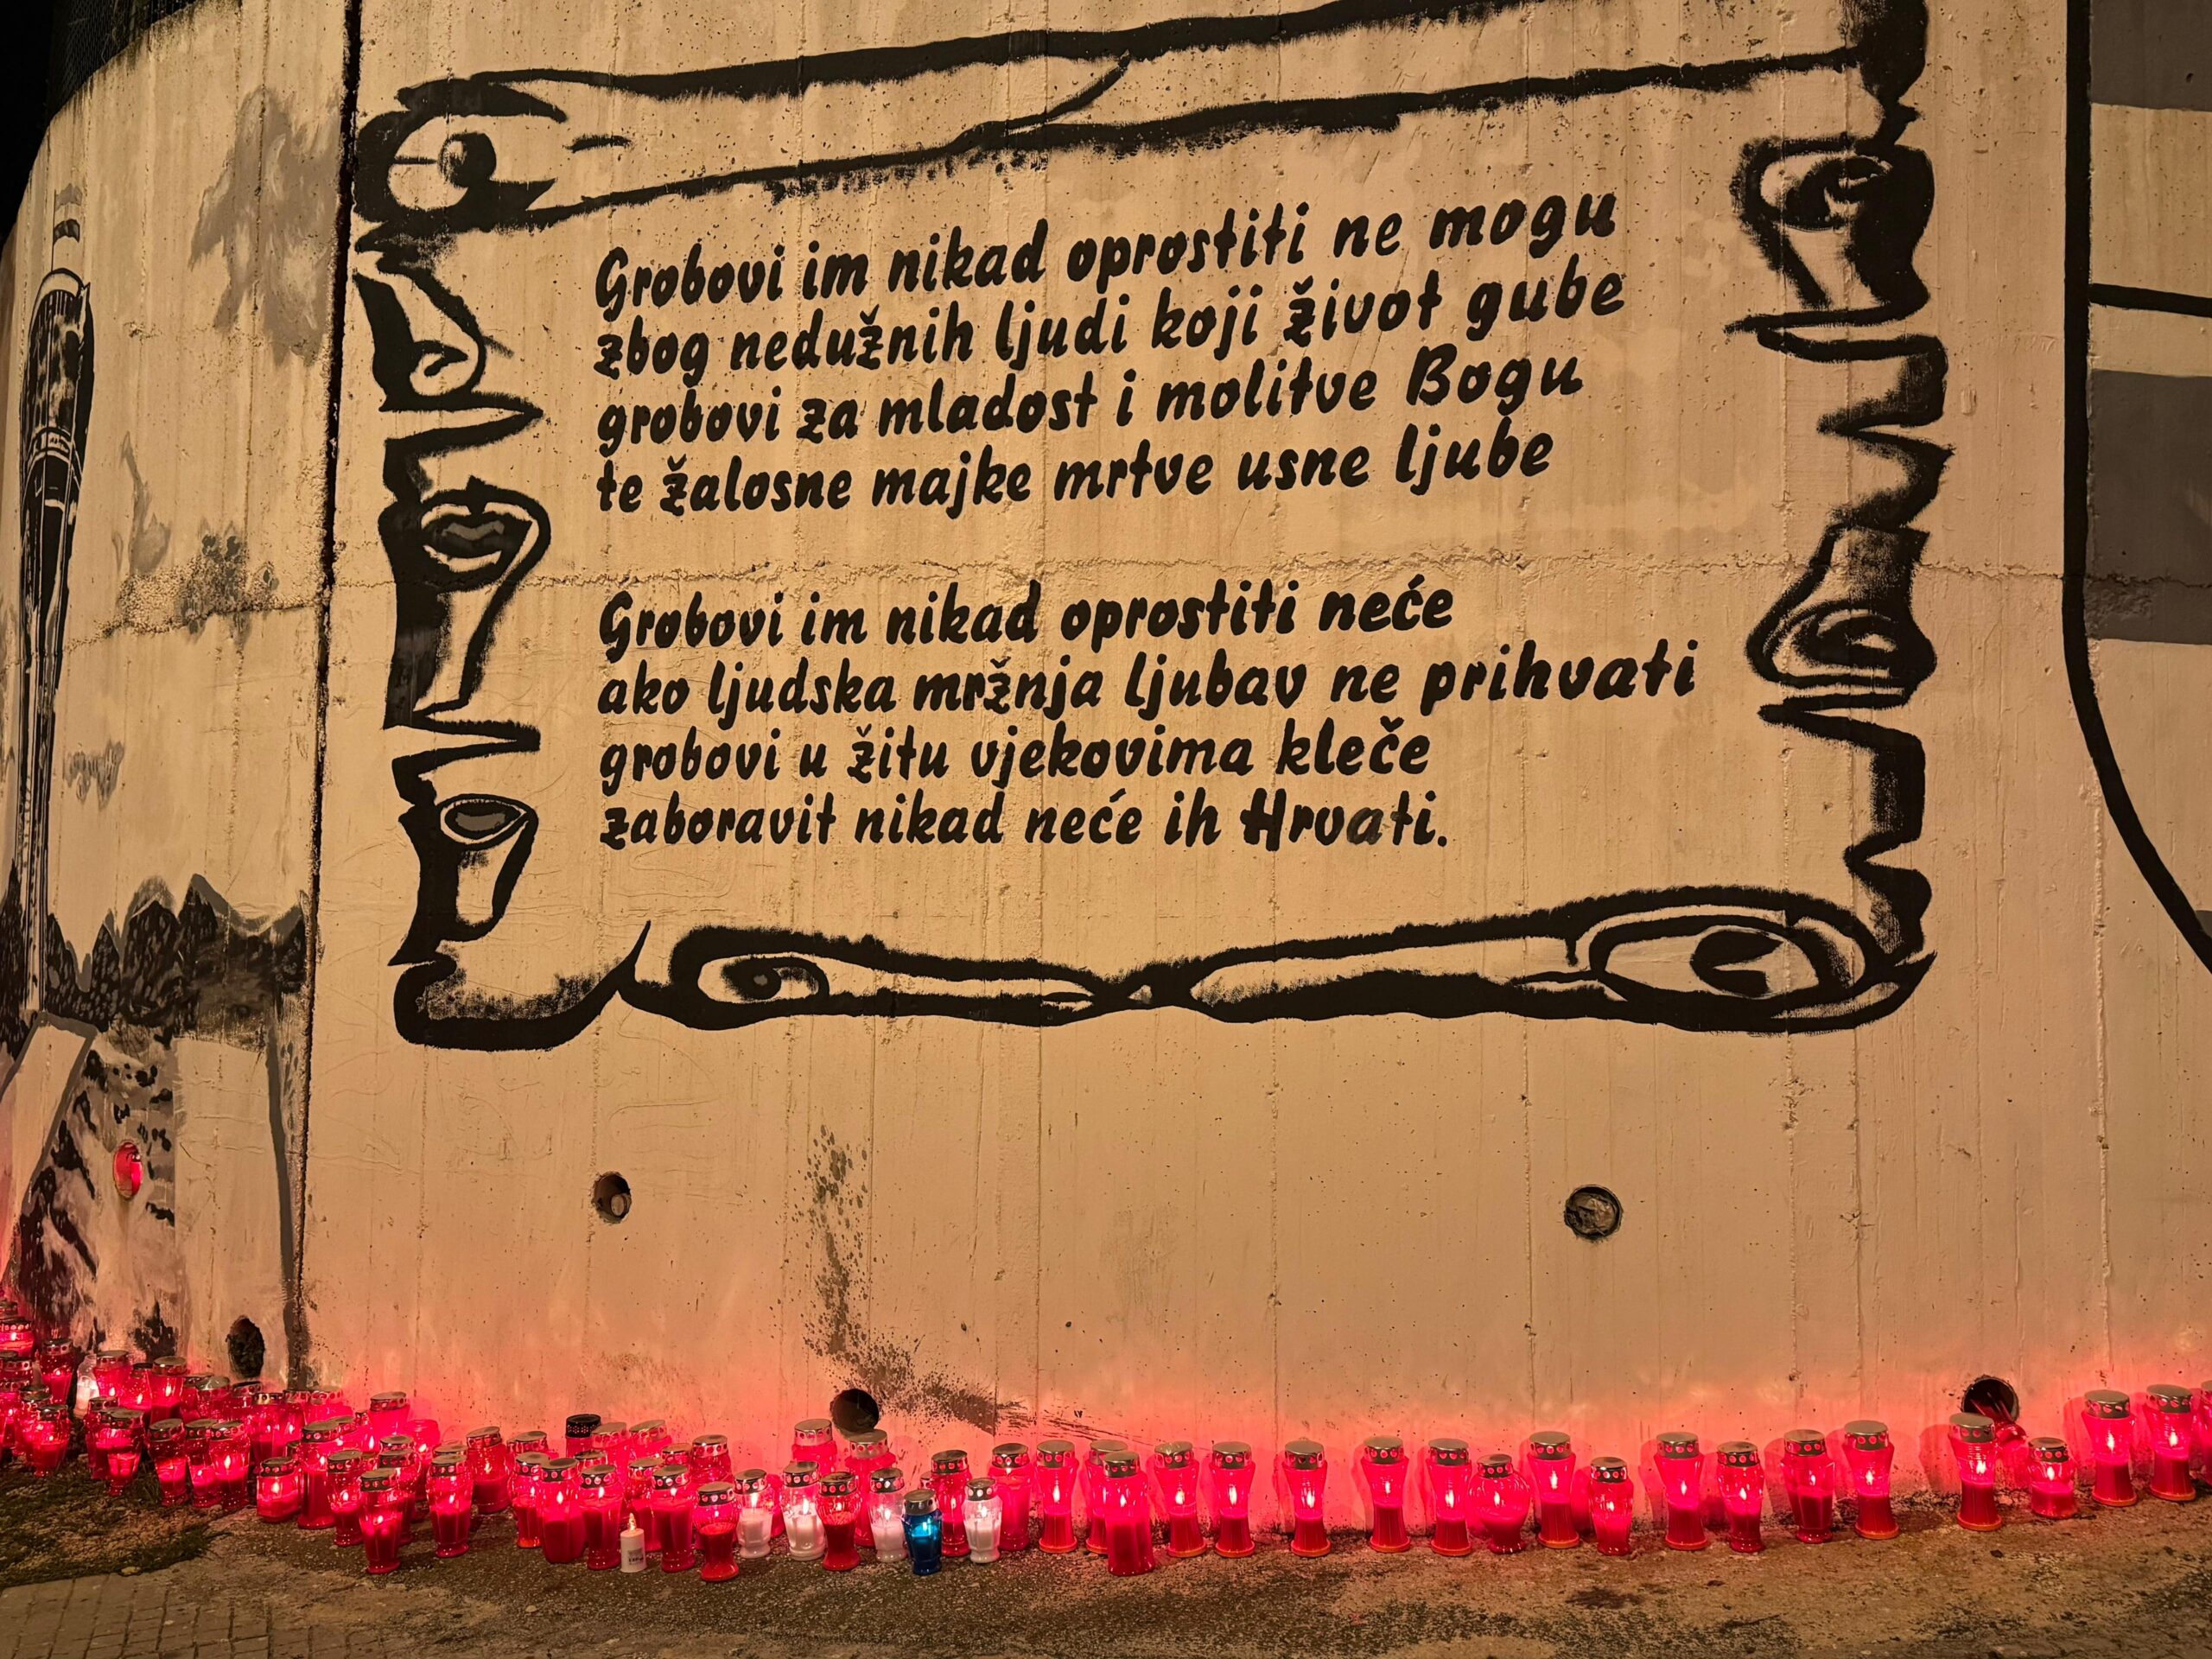 Grobovi im nikad oprostiti ne mogu
zbog nedužnih ljudi koji život gube
grobovi za mladost i molitve Bogu
te žalosne majke mrtve usne ljube
Grobovi im nikad oprostiti neće
ako ljudska mržnja ljubav ne prihvati
grobovi u žitu vjekovima kleče
zaboravit nikad neće ih Hrvati.